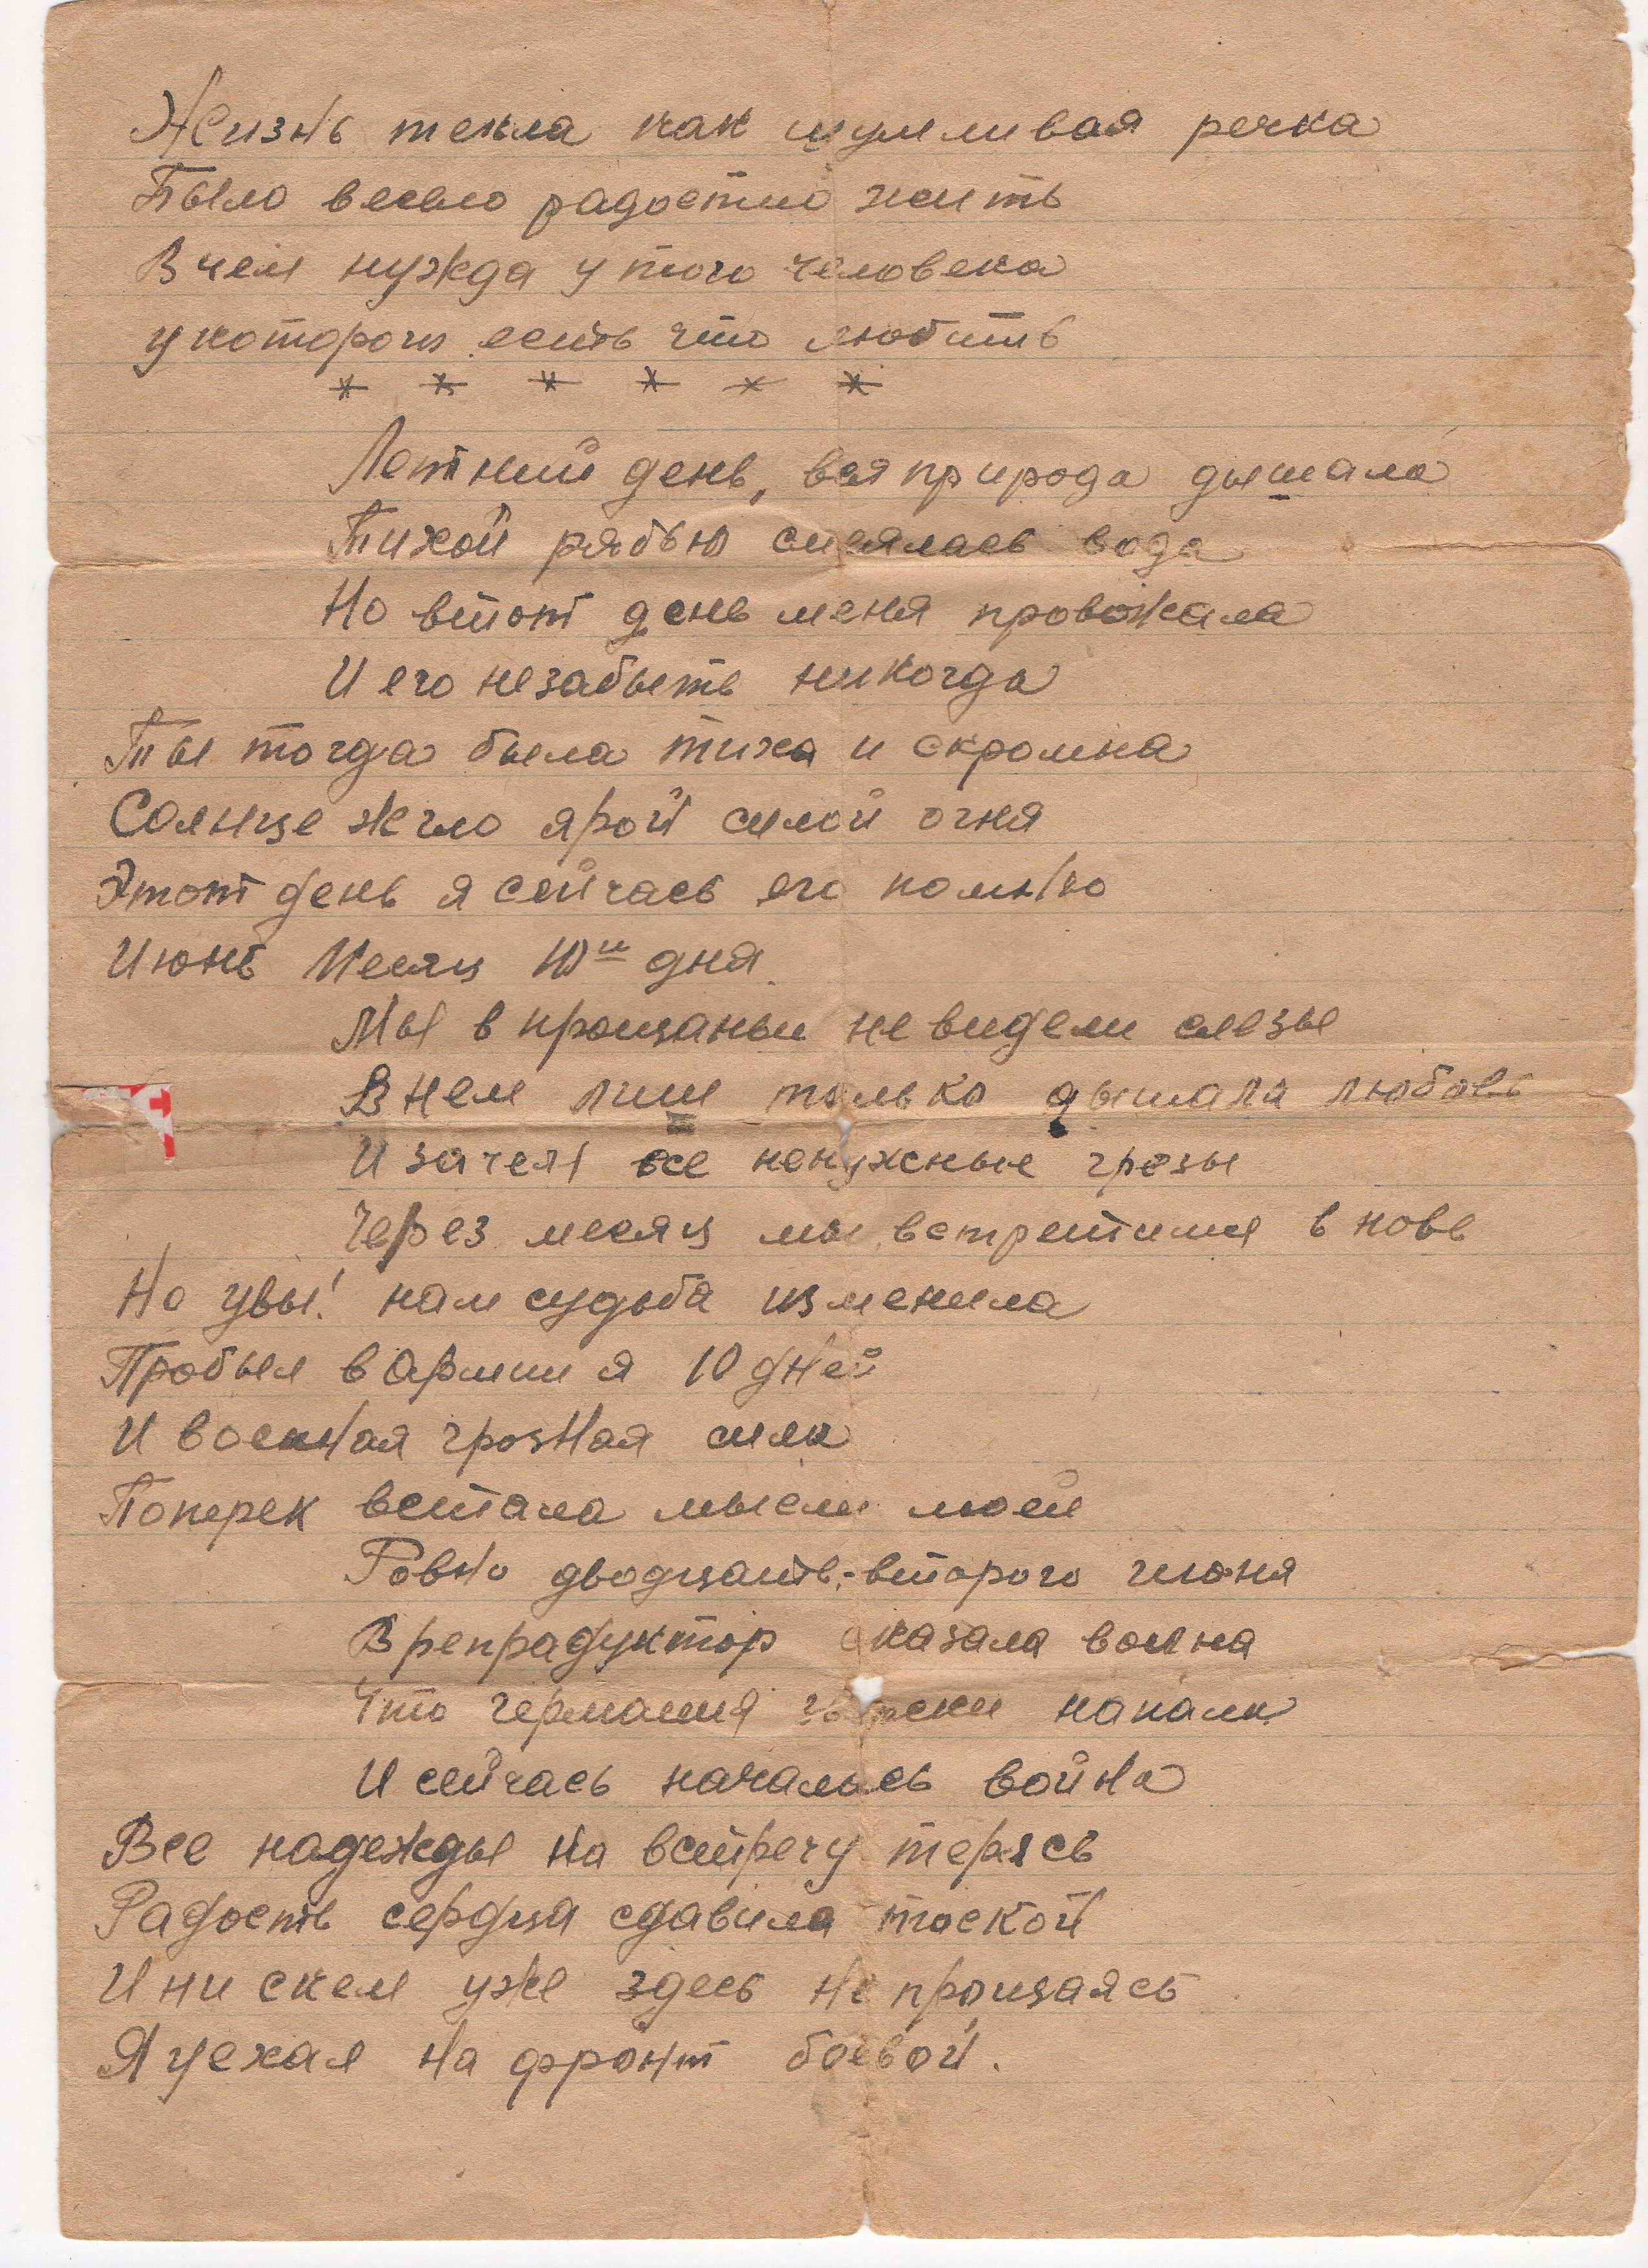 Жизнь текла как шумливая речка
Было весело радостно жить
В чем нужда у того человека
у которого есть что любить
* * * * * *
Летний день, вся природа дышала
Тихой рябью смеялась вода
Но втот день меня провожала
И его незабыть никогда
Ты тогда была тиха и скромна
Солнце жгло ярой силой огня
Этот день я сейчась его помню
Июнь Месяц 10го дня.
Мы в прощаньи не видели слезы
В нем лиш только дышала любовь
И зачем все ненужные грезы
Через месяц мы встретимся в новь
Но увы! нам судьба изменила
Пробыл в Армии я 10 дней
И военная грозная сила
Поперек встала мысли моей
Ровно двадцать-второго июня
В репрадуктор сказала война
Что германия зверски напала
И сейчась началась война
Все надежды на встречу терясь
Радость сердца сдавила тоской
И ни скем уже здесь не прощаясь
Я уехал на фронт боевой.